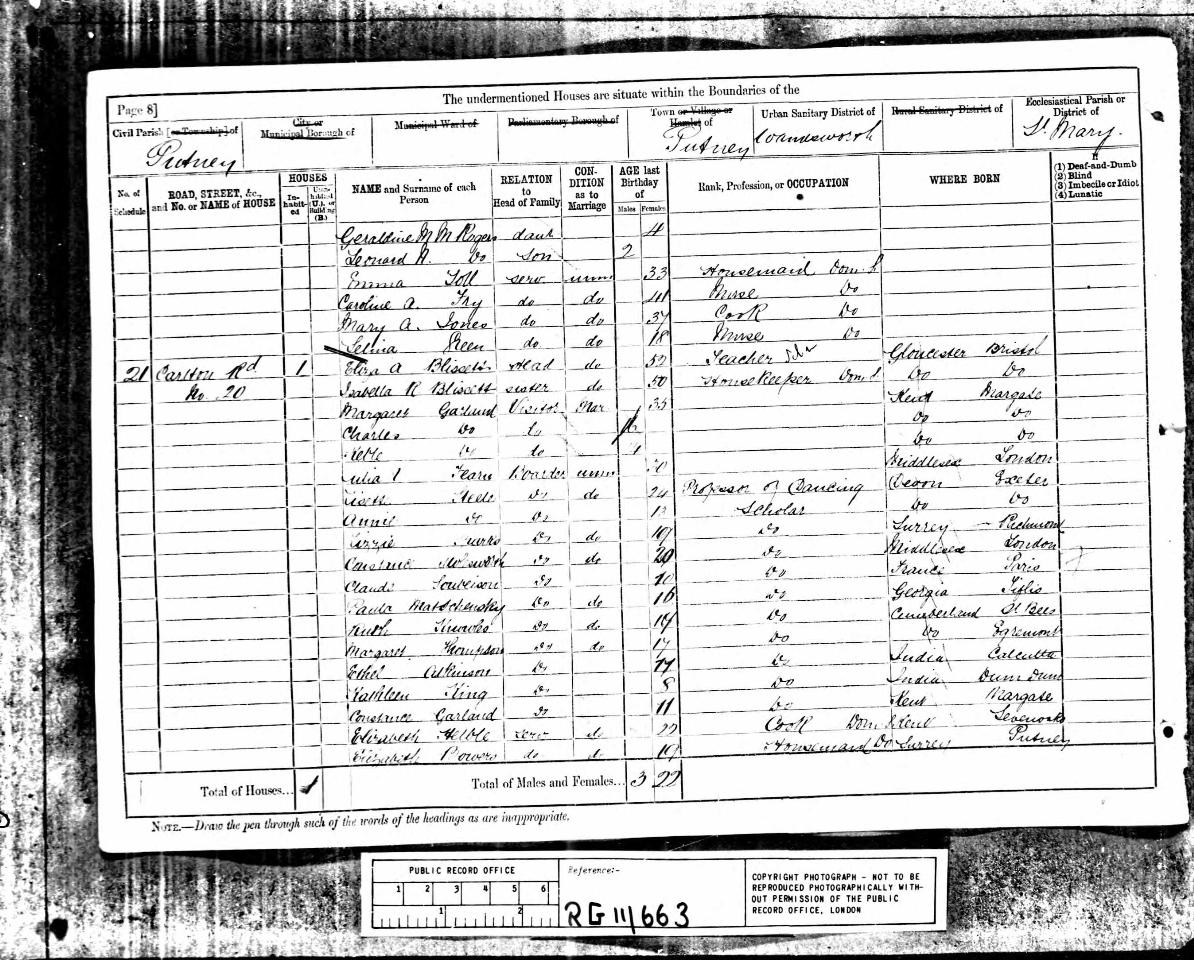 The undermentioned Houses are situate within the Boundaries of the
Page 8]
Civil Parish [or Township] of
Putney
City or Municipal Borough of
Municipal Ward of
Parliamentary Borough of
Town or Village or Hamlet of
Putney
Urban Sanitary District of
Wandsworth
Rural Sanitary District of
Ecclesiastical Parish or District of
St. Mary.
No. of Schedule
ROAD, STREET, &c., and No. or NAME of HOUSE
HOUSES
In-habit-ed
Unin-habited (U.), or Building (B.)
NAME and Surname of each Person
RELATION to Head of Family
CON-DITION as to Marriage
AGE last Birthday of
Males Females
Rank, Profession, or OCCUPATION
WHERE BORN
If
(1) Deaf-and-Dumb
(2) Blind
(3) Imbecile or Idiot
(4) Lunatic
Geraldine M M Rogers daur 4
Leonard A. Do Son 2
Emma Toll serv unm 33 Housemaid Dom. S
Caroline A. Fry do do 41 Nurse Do
Mary A. Jones do do 37 Cook Do
Selina do do 18 Nurse Do
21 Carlton Rd 1 Eliza A Blissett Head do 52 Teacher Gloucester Bristol
No. 20 Isabella R Blissett sister do 50 Housekeeper Dom. S Do Do
Margaret Garland Visitor Mar 35 Kent Margate
Charles Do Do Do
Do do Do Do
Julia Fearn Boarder unm Middlesex London
Do do 24 Professor of Dancing Devon Exeter
Annie Do Scholar Do Do
Lizzie Do do 19 Do Surrey Richmond
Constance Molesworth Do do 20 Do Middlesex London
Claude Do 10 Do France Paris
Paula Matschensky Do do 16 Do Georgia Tiflis
Ruth Knowles Do do 19 Do Cumberland St Bees
Margaret Thompson Do do 17 Do Do Egremont
Ethel Atkinson Do Do India Calcutta
Kathleen King Do 8 Do India Dum Dum
Constance Garland Do 11 Do Kent Margate
Elizabeth serv do 22 Cook Dom S Kent Sevenoaks
Elizabeth Powers do do 19 Housemaid Do Surrey Putney
Total of Houses... 1
Total of Males and Females... 3 22
NOTE.—Draw the pen through such of the words of the headings as are inappropriate.
PUBLIC RECORD OFFICE
1 2 3 4 5 6
1 2
Reference:-
RG 11/663
COPYRIGHT PHOTOGRAPH - NOT TO BE
REPRODUCED PHOTOGRAPHICALLY WITH-
OUT PERMISSION OF THE PUBLIC
RECORD OFFICE, LONDON